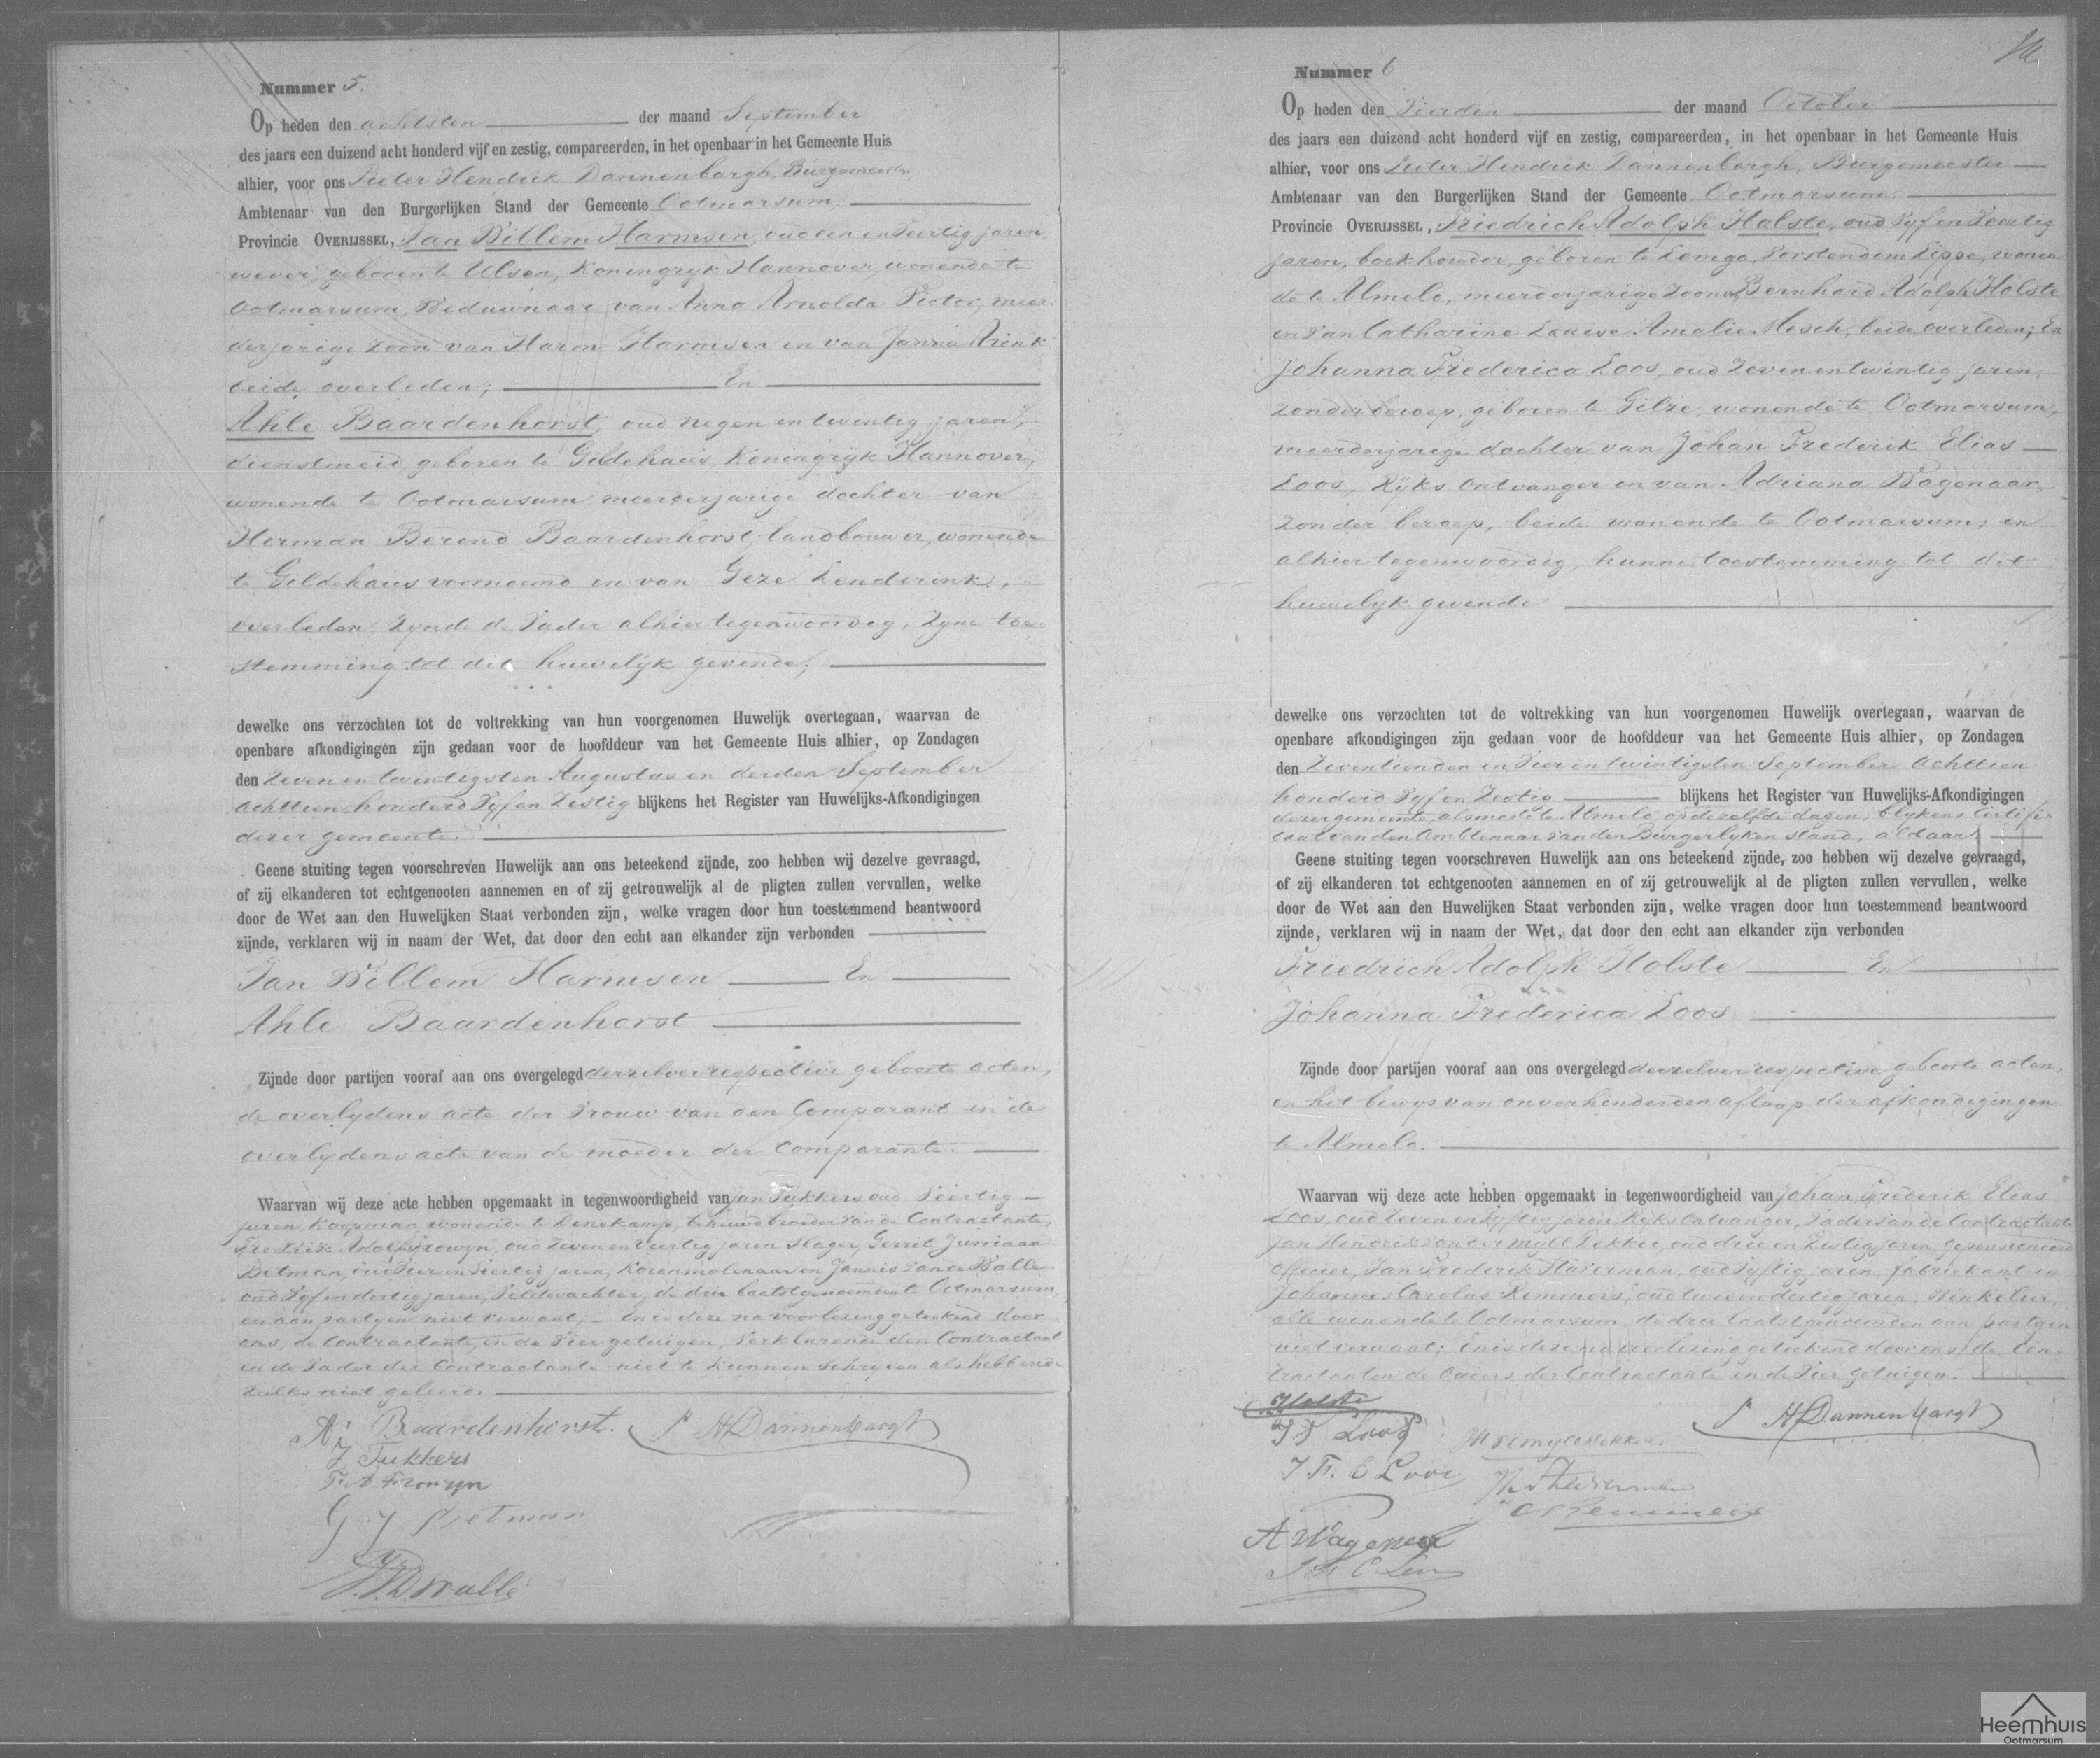 Nummer 5.
Op heden den achtsten der maand September
des jaars een duizend acht honderd vijf en zestig, compareerden, in het openbaar in het Gemeente Huis
alhier, voor ons Pieter Hendrik Dannenbargh, Burgemeester
Ambtenaar van den Burgerlijken Stand der Gemeente Ootmarsum,
Provincie OVERIJSSEL, Jan Willem Harmsen, oud een en Veertig jaren,
wever, geboren te Ulsen, Koningryk Hannover, wonende te
Ootmarsum, Weduwnaar van Anna Arnolda Pieter, meer-
derjarige Zoon van Harm Harmsen en van Janna Arink
beide overleden; En
Ahle Baardenhorst, oud negen en twintig jaren,
dienstmeid, geboren te Gildehaus, Koningryk Hannover,
wonende te Ootmarsum, meerderjarige dochter van
Herman Berend Baardenhorst, landbouwer, wonende
te Gildehaus voornoemd en van Geze Lenderink,
overleden, Zynde de Vader alhier tegenwoordig, Zyne toe-
stemming tot dit huwelijk gevende;
dewelke ons verzochten tot de voltrekking van hun voorgenomen Huwelijk overtegaan, waarvan de
openbare afkondigingen zijn gedaan voor de hoofddeur van het Gemeente Huis alhier, op Zondagen
den Zeven en twintigsten Augustus en derden September
achttien honderd Vyf en Zestig blijkens het Register van Huwelijks-Afkondigingen
dezer gemeente.
Geene stuiting tegen voorschreven Huwelijk aan ons beteekend zijnde, zoo hebben wij dezelve gevraagd,
of zij elkanderen tot echtgenooten aannemen en of zij getrouwelijk al de pligten zullen vervullen, welke
door de Wet aan den Huwelijken Staat verbonden zijn, welke vragen door hun toestemmend beantwoord
zijnde, verklaren wij in naam der Wet, dat door den echt aan elkander zijn verbonden
Jan Willem Harmsen En
Ahle Baardenhorst
Zijnde door partijen vooraf aan ons overgelegd derzelver respective geboorte acten,
de overlydens acte der Vrouw van den Comparant en de
overlydens acte van de moeder der Comparante.
Waarvan wij deze acte hebben opgemaakt in tegenwoordigheid van Jan Tukkers oud Veertig
jaren, Koopman, wonende te Denekamp, behuwd broeder van de Contractante,
Fredrik Adolf Frowyn, oud Zeven en veertig jaren Slager, Gerrit Jurriaan
oud Vier en Veertig jaren, Korenmolenaar en Jannis van de Walle
oud Vyf en dertig jaren, Veldwachter, de drie laatstgenoemden te Ootmarsum
en aan partyen niet verwant; En is deze na voorlezing geteekend door
ons, de Contractante, en de Vier getuigen, Verklarende den Contractant
en de Vader der Contractante niet te kunnen schryven als hebbende
zulks niet geleerd.
A Baardenhorst. P H Dannenbargh
J Tukkers
F. A Frowyn
G J
Walle
Nummer 6
Op heden den Vierden der maand October
des jaars een duizend acht honderd vijf en zestig, compareerden, in het openbaar in het Gemeente Huis
alhier, voor ons Pieter Hendrik Dannenbargh, Burgemeester
Ambtenaar van den Burgerlijken Stand der Gemeente Ootmarsum,
Provincie OVERIJSSEL, Friedrich Adolph Holste, oud Vyf en Veertig
jaren, boekhouder, geboren te Lemgo, Vorstendom Lippe, wonen-
de te Almelo, meerderjarige Zoon van Bernhard Adolph Holste
en Van Catharine Louise Amalie Mesch, beide overleden; En
Johanna Frederica Loos, oud Zeven en twintig jaren,
zonder beroep, geboren te Gilze, wonende te Ootmarsum,
meerderjarige dochter van Johan Frederik Elias
Loos, Ryks Ontvanger en van Adriana Wagenaar,
zonder beroep, beide wonende te Ootmarsum, en
alhier tegenwoordig, hunne toestemming tot dit
huwelyk gevende
dewelke ons verzochten tot de voltrekking van hun voorgenomen Huwelijk overtegaan, waarvan de
openbare afkondigingen zijn gedaan voor de hoofddeur van het Gemeente Huis alhier, op Zondagen
den Zeventienden en Vier en twintigsten September achttien
honderd Vyf en Zestig blijkens het Register van Huwelijks-Afkondigingen
dezer gemeente, alsmede te Almelo, op dezelfde dagen, blykens Certifi-
caat van den Ambtenaar van den Burgerlyken stand, aldaar.
Geene stuiting tegen voorschreven Huwelijk aan ons beteekend zijnde, zoo hebben wij dezelve gevraagd,
of zij elkanderen tot echtgenooten aannemen en of zij getrouwelijk al de pligten zullen vervullen, welke
door de Wet aan den Huwelijken Staat verbonden zijn, welke vragen door hun toestemmend beantwoord
zijnde, verklaren wij in naam der Wet, dat door den echt aan elkander zijn verbonden
Friedrich Adolph Holste En
Johanna Frederica Loos
Zijnde door partijen vooraf aan ons overgelegd derzelver respective geboorte acten,
en het bewys van onverhinderden afloop der afkondigingen
te Almelo.
Waarvan wij deze acte hebben opgemaakt in tegenwoordigheid van Johan Frederik Elias
Loos, oud Zeven en Vyftig jaren, Ryks Ontvanger, Vader van de Contractante
Jan Hendrik van der Myll Dekker, oud drie en Zestig jaren, gepensioneerd
officier, Jan Frederik Haverman, oud Vyftig jaren, fabriekant en
Johannes Carolus Remmers, oud twee en dertig jaren, Winkelier,
alle wonende te Ootmarsum, de drie laatstgenoemden aan partyen
niet verwant; En is deze na voorlezing geteekend door ons, de Con-
tractanten, de Ouders der Contractante en de Vier getuigen.
Holste
J F Loos P H Dannenbargh
J Fr. E Loos
A Wagenaar
Heemhuis
Ootmarsum